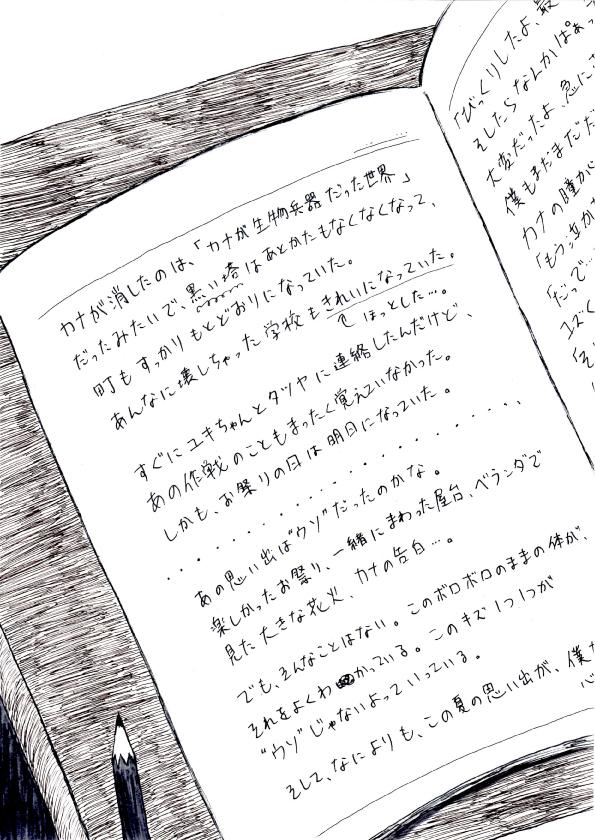 カナが消したのは、「カナが生物兵器だった世界」
だったみたいで、黒い塔はあとかたもなくなくなって、
町もすっかりもとどおりになっていた。
あんなに壊しちゃった学校もきれいになっていた。
ほっとした…。
すぐにユキちゃんとタツヤに連絡したんだけど、
あの作戦のこともまったく覚えていなかった。
しかも、お祭りの日は明日になっていた。
・・・・・・・・・・・・・・・・・・・・
あの思い出は"ウソ"だったのかな。
楽しかったお祭り、一緒にまわった屋台、ベランダで
見た大きな花火、カナの告白…。
でも、そんなことはない。このボロボロのままの体が、
それをよくわかっている。このキズ1つ1つが
"ウソ"じゃないよっていっている。
そして、なによりも、この夏の思い出が、僕
心
「びっくりしたよ、最
そしたらなんかぱぁっ
大変だったよ、急に
僕もまだまだだ
カナの瞳か
「もう泣か
「だって…
ユズ
「そ